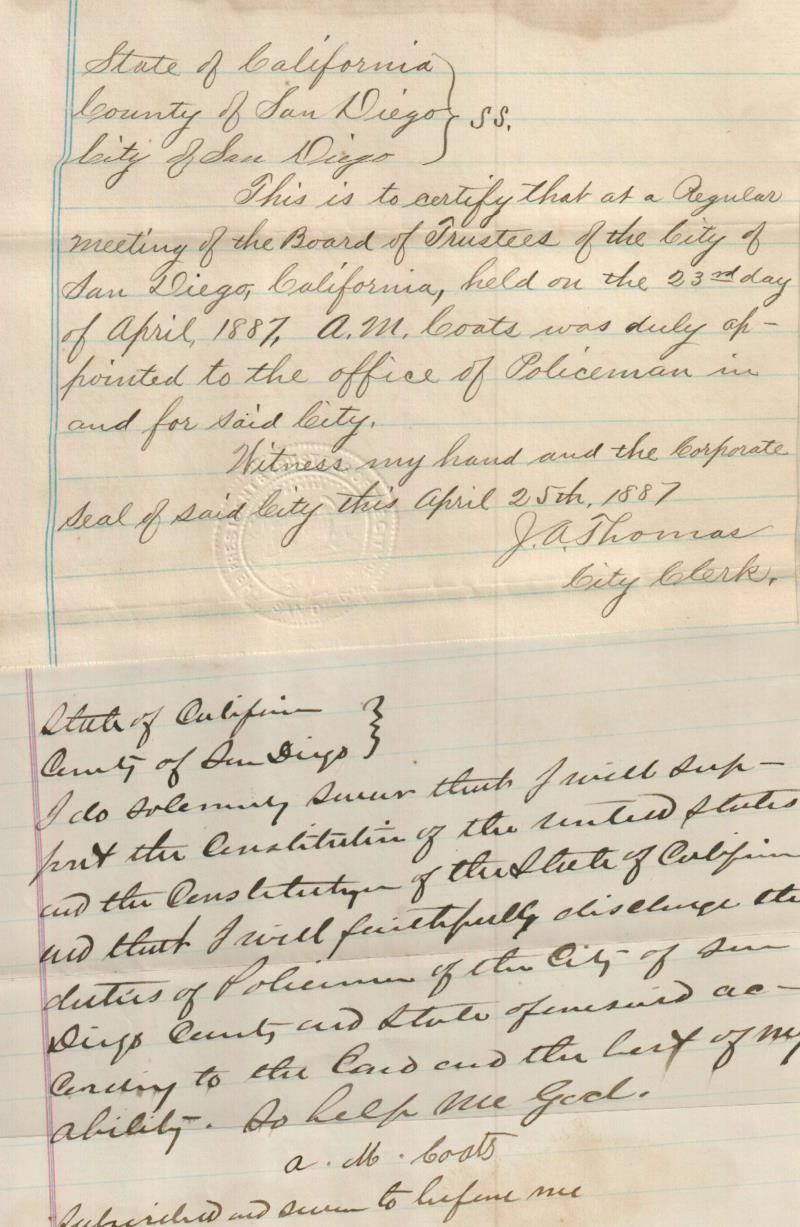 State of California
County of San Diego } SS.
City of San Diego
This is to certify that at a Regular
meeting of the Board of Trustees of the City of
San Diego, California, held on the 23rd day
of April, 1887, A. M. Coats was duly ap-
pointed to the office of Policeman in
and for said City.
Witness my hand and the Corporate
seal of said City this April 25th, 1887
J. A. Thomas
City Clerk.
State of California }
County of San Diego
I do solemnly swear that I will sup-
port the Constitution of the United States
and the Constitution of the State of California
and that I will faithfully discharge the
duties of Policeman of the City of San
Diego County and State aforesaid ac-
cording to the Law and the best of my
ability. So help me God.
A. M. Coats
Subscribed and sworn to before me